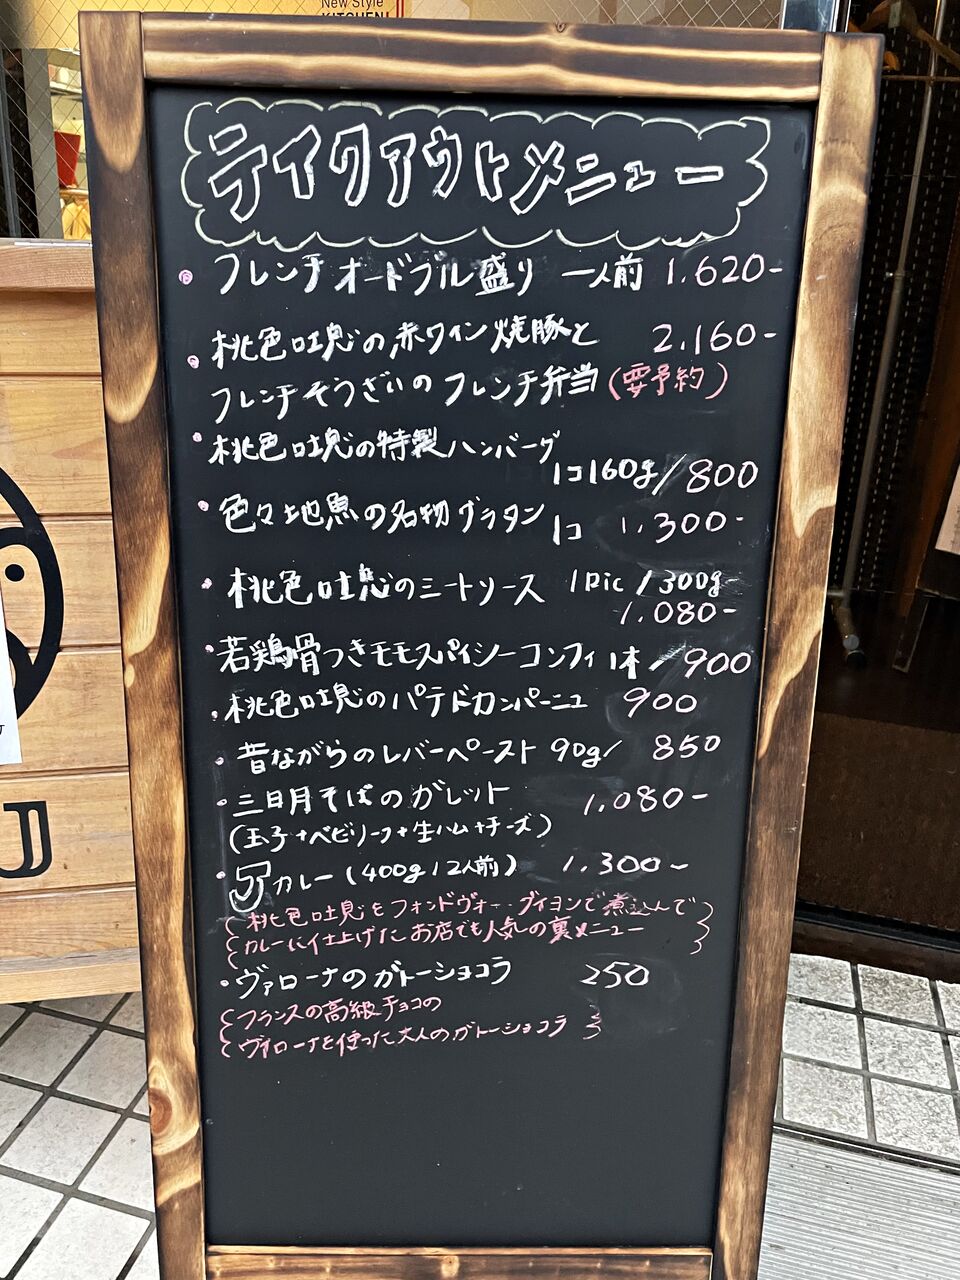 New Style
KITCHEN!
テイクアウトメニュー
・フレンチオードブル盛り 一人前 1,620-
・桃色吐息の赤ワイン焼豚と 2,160-
フレンチそうざいのフレンチ弁当(要予約)
・桃色吐息の特製ハンバーグ
1コ160g/800
・色々地魚の名物グラタン 1コ 1,300-
・桃色吐息のミートソース 1pic/300g
1,080-
・若鶏骨つきモモスパイシーコンフィ 1本/900
・桃色吐息のパテドカンパーニュ 900
・昔ながらのレバーペースト 90g/ 850
・三日月そばのガレット 1,080-
(玉子+ベビリーフ+生ハム+チーズ)
・Jカレー(400g/2人前) 1,300-
桃色吐息をフォンドヴォー・ブイヨンで煮込んで
カレーに仕上げたお店でも人気の裏メニュー
・ヴァローナのガトーショコラ 250
フランスの高級チョコの
ヴァローナを使った大人のガトーショコラ